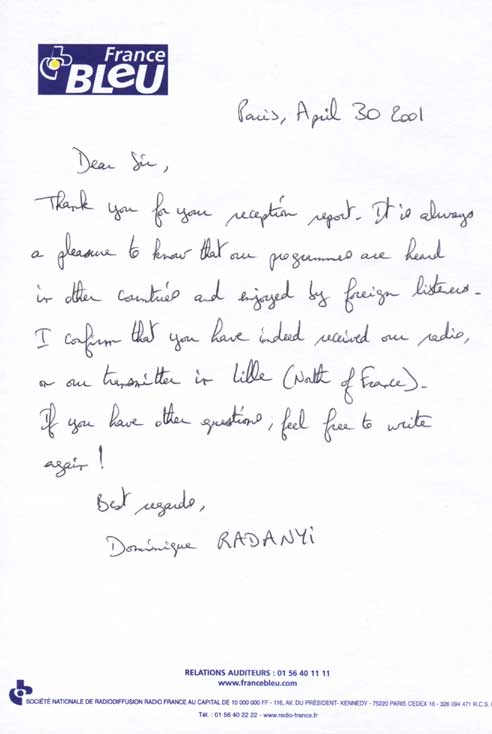 France
BLEU
Paris, April 30 2001
Dear Sir,
Thank you for your reception report. It is always
a pleasure to know that our programmes are heard
in other countries and enjoyed by foreign listeners.
I confirm that you have indeed received our radio,
on our transmitter in Lille (North of France).
If you have other questions, feel free to write
again!
Best regards,
Dominique RADANYI
RELATIONS AUDITEURS : 01 56 40 11 11
www.francebleu.com
SOCIÉTÉ NATIONALE DE RADIODIFFUSION RADIO FRANCE AU CAPITAL DE 10 000 000 FF - 116, AV. DU PRÉSIDENT- KENNEDY - 75220 PARIS CEDEX 16 - 326 094 471 R.C.S.
Tél. : 01 56 40 22 22 - www.radio-france.fr